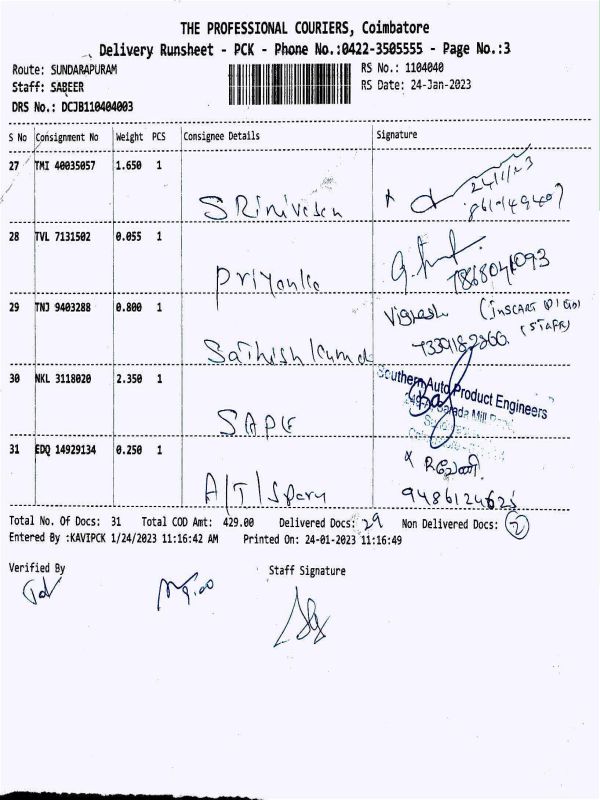 THE PROFESSIONAL COURIERS, Coimbatore
Delivery Runsheet - PCK - Phone No.:0422-3505555 - Page No.:3
Route: SUNDARAPURAM RS No.: 1104040
Staff: SABEER RS Date: 24-Jan-2023
DRS No.: DCJB110404003
S No Consignment No Weight PCS Consignee Details Signature
27 TMI 40035057 1.650 1
24/1/23
SRinivasan
28 TVL 7131502 0.055 1
Priyanka
29 TNJ 9403288 0.800 1
Vignesh
(STAFF)
Sathish Kumar
30 NKL 3118020 2.350 1
Southern Auto Product Engineers
Sarada Mill Road
SAPE
31 EDQ 14929134 0.250 1
A/T/Spary
9486124625
Total No. Of Docs: 31 Total COD Amt: 429.00 Delivered Docs: 29 Non Delivered Docs: 2
Entered By :KAVIPCK 1/24/2023 11:16:42 AM Printed On: 24-01-2023 11:16:49
Verified By Staff Signature